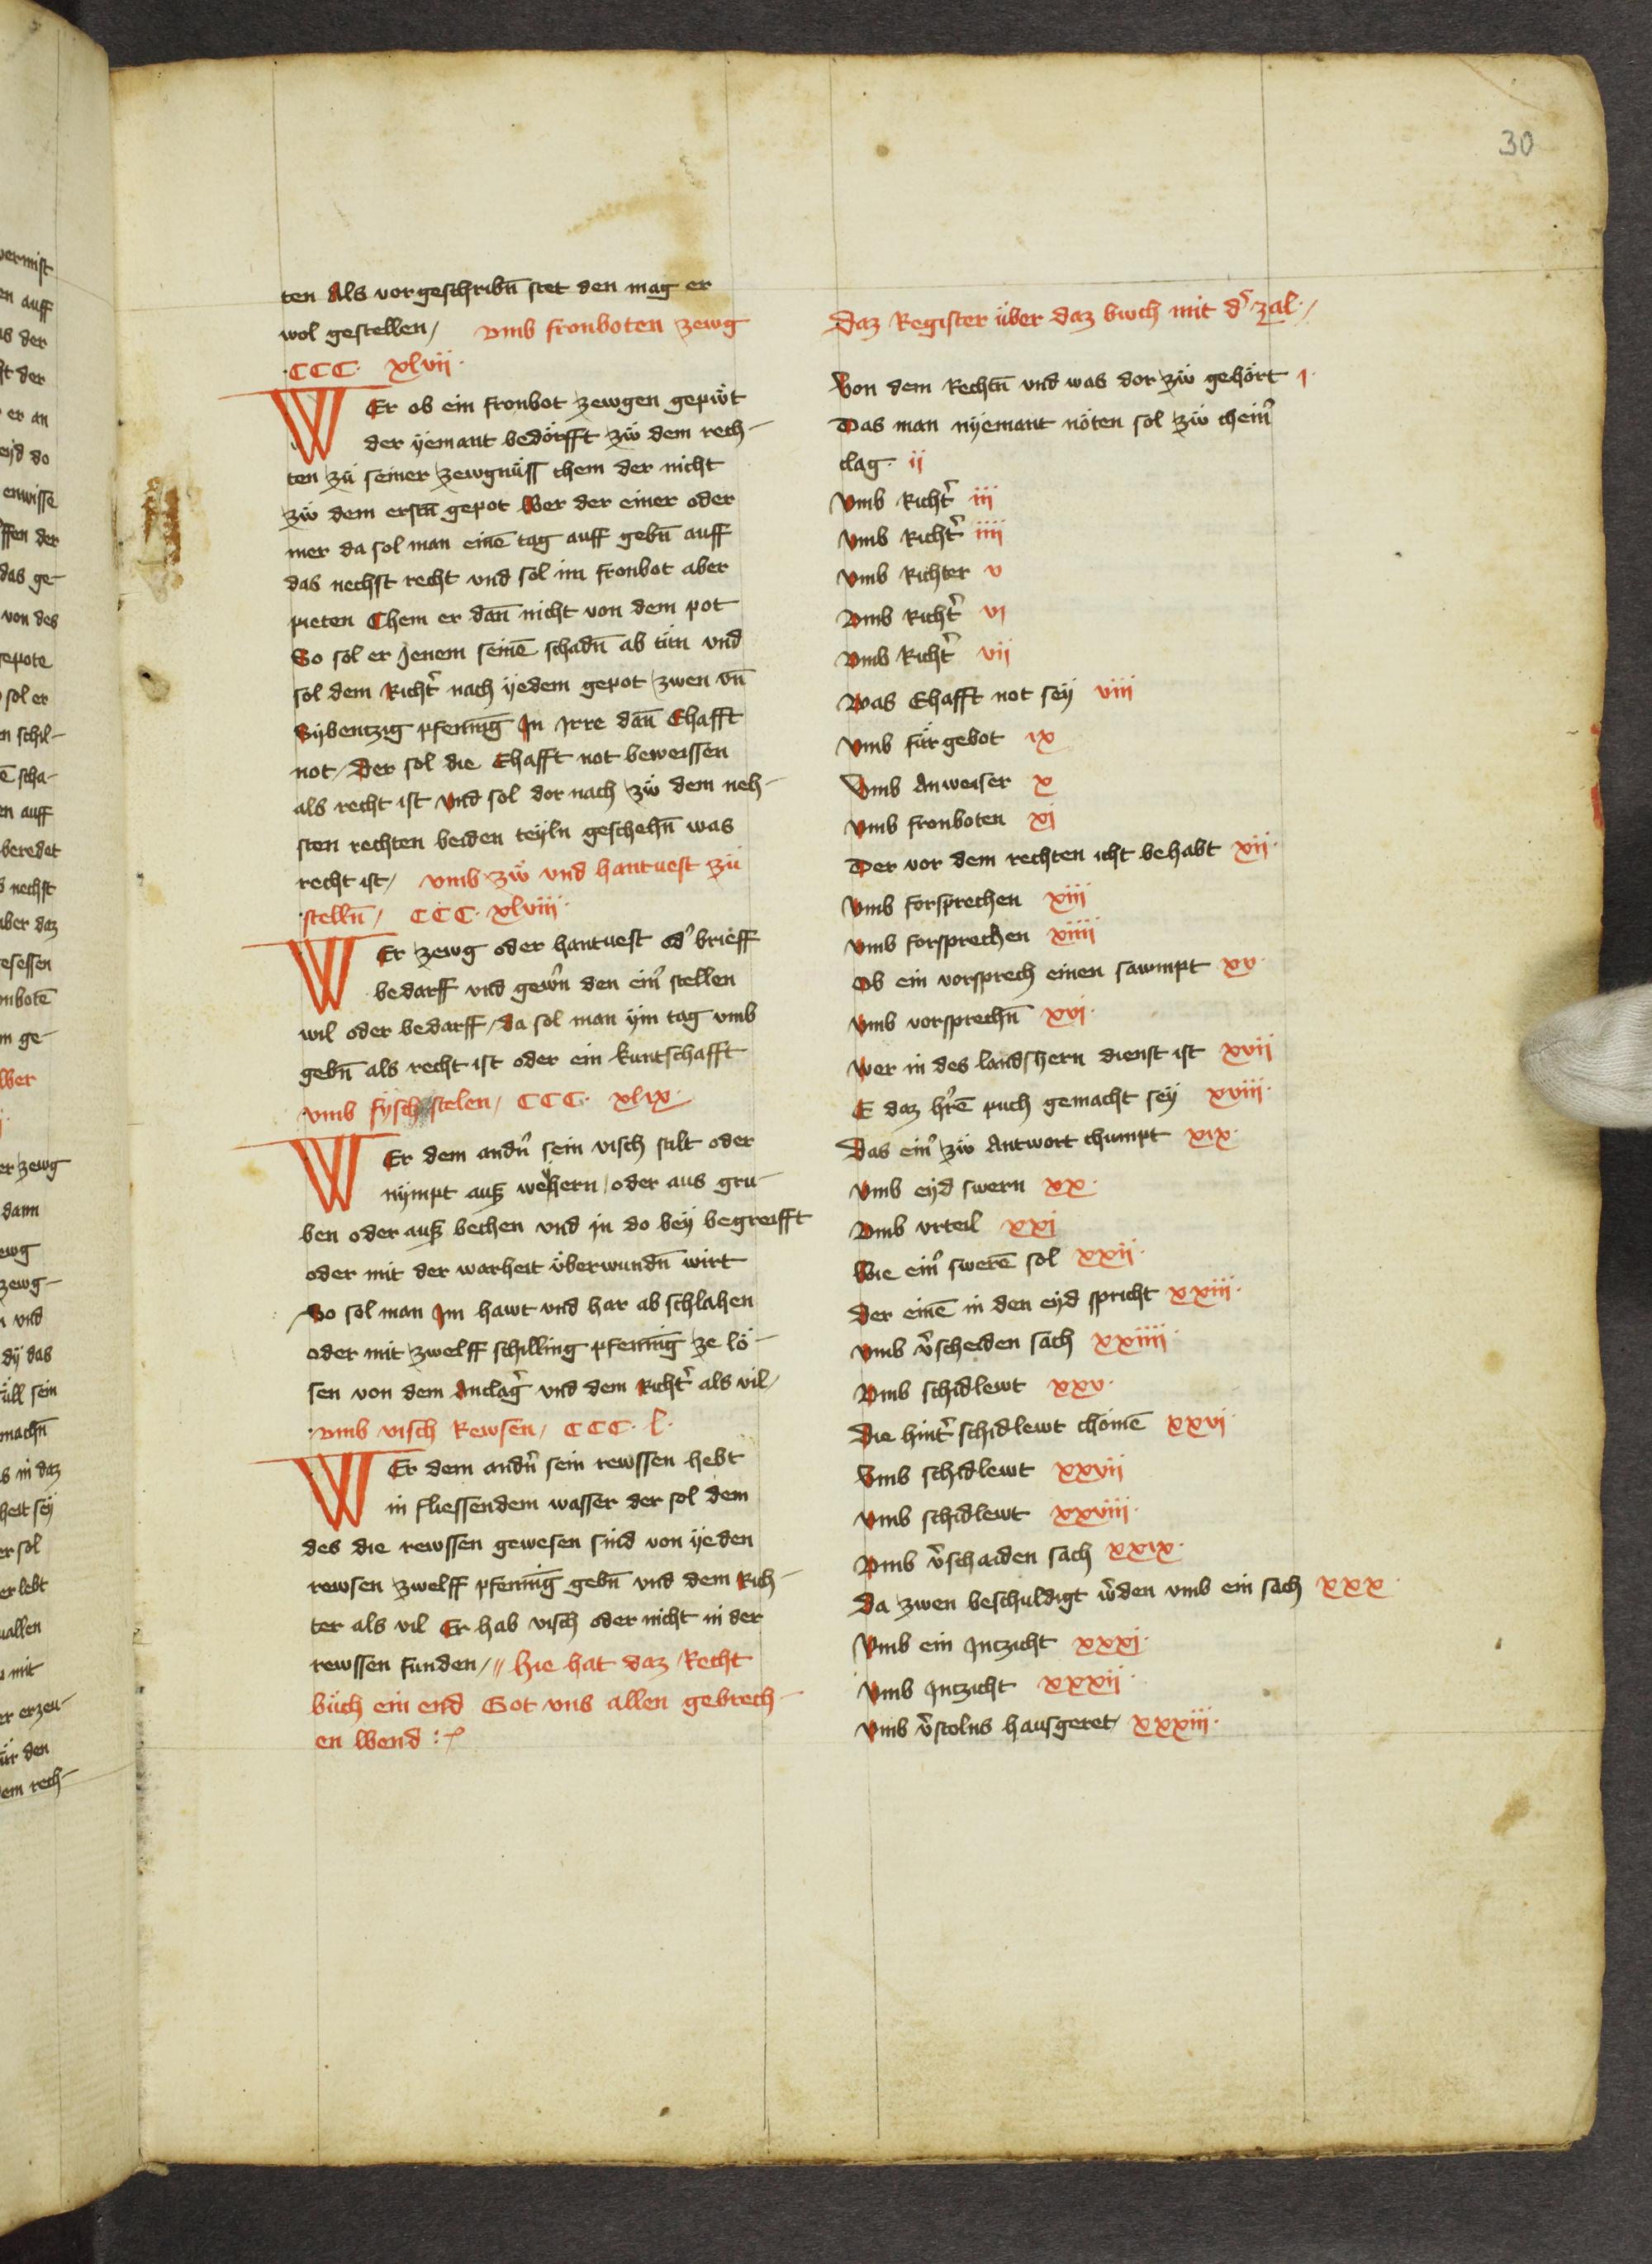 30
ten Als vorgeschribn̄ stet den mag er
wol gestellen / vmb fronboten zewg
·CCC· xlvii·
WEr ob ein fronbot zewgen gepiẅt
der yemant bedörfft zẅ dem rech-
ten zü seiner zewgnüss chem der nicht
zẅ dem erstn̄ gepot Wer der einer oder
mer da sol man einē tag auff gebn̄ auff
das nechst recht vnd sol im fronbot aber
pieten Chem er dan̄ nicht von dem pot
So sol er Jenem seinē schadn̄ ab tün vnd
sol dem Richt̓ nach ÿedem gepot zwen vn̄
Sÿbentzig pfenninḡ In Irre dan̄ Ehafft
not / Der sol die Ehafft not beweissen
als recht ist Vnd sol dor nach zẅ dem neh-
sten rechten beiden teÿln geschehn̄ was
recht ist / vmb zẅ vnd hantuest zü
·stelln̄ / CCC· xlviii·
WEr zewg oder hantuest od̓ brieff
bedarff vnd gewn̓ den ein̓ stellen
wil oder bedarff / da sol man ÿm tag vmb
gebn̄ als recht ist oder ein kuntschafft
vmb fysch stelen / CCC· xlix·
WEr dem andn̓ sein visch stilt oder
nÿmpt auß weẏhern / oder aus gru-
ben oder auß bechen vnd in do beÿ begreifft
oder mit der warheit überwundn̄ wirt
So sol man Im hawt vnd har ab schlahen
oder mit zwelff schilling pfenninḡ ze lö-
sen von dem Anclag̓ vnd dem Richt̓ als vil /
·vmb visch Rewsen / CCC· l·
WEr dem andn̓ sein rewssen hebt
in fliessendem wasser der sol dem
des die rewssen gewesen sind von ÿeden
rewsen zwelff pfenninḡ gebn̄ vnd dem Rich-
ter als vil Er hab visch oder nicht in der
rewssen funden / // hie hat daz Recht
büch ein end Got vns allen gebrech-
en Wend :~
Daz Register über daz buch mit d̓ zal· /
Von dem Rechtn̄ vnd was dor zẅ gehört i·
Das man nÿemant nöten sol zẅ chein̓
clag· ii
Vmb Richt̓ iii
Vmb Richt̓ iiii
Vmb Richter v
Vmb Richt̓ vi
Vmb Richt̓ vii
Was Ehafft not seÿ viii
Vmb fürgebot ix
Vmb Anweiser x
Vmb fronboten xi
Der vor dem rechten icht behabt xii·
Vmb forsprechen xiii
Vmb forsprechen xiiii
Ob ein vorsprech einen sawmpt xv·
Vmb vorsprechn̄ xvi·
Wer in des landshern dienst ist xvii
E daz hr̓ē puch gemacht seÿ xviii·
Das ein̓ zẅ Antwort chumpt xix·
Vmb eÿd swern xx·
Vmb vrteil xxi
Wie ein̓ swerē sol xxii·
Der einē in den eÿd spricht xxiii·
Vmb v̓scheiden sach xxiiii·
Vmb schidlewt xxv·
Die hint̓ schidlewt chömē xxvi·
Vmb schidlewt xxvii
Vmb schidlewt xxviii·
Vmb v̓schaiden sach xxix·
Da zwen beschuldigt w̓den vmb ein sach xxx·
Vmb ein Inczicht xxxi·
Vmb Inczicht xxxii·
Vmb v̓stolns hausgeret / xxxiii·